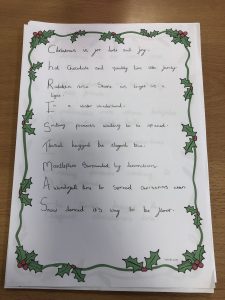 Christmas is for love and joy.
hot chocolate and
Rudolph's nose shone as bright as a
light.
In a winter wonderland.
Smiling presents waiting to be opened.
Tinsel hugged the elegant tree.
Mistletoe Surrounded by decorations.
A time to Spread Christmas cheer.
Snow danced it's way to the floor.